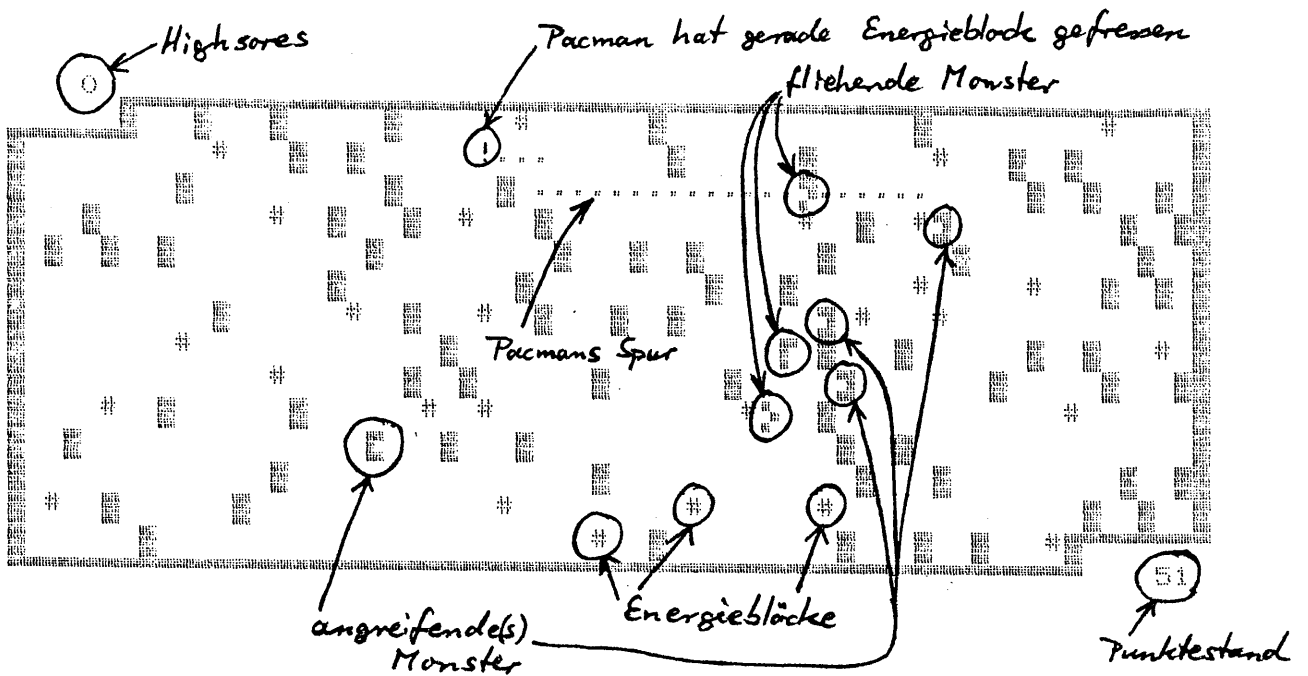 Highsores
Pacman hat gerade Energieblock gefressen
fliehende Monster
0
!
Pacmans Spur
angreifende(s)
Monster
Energieblöcke
51
Punktestand